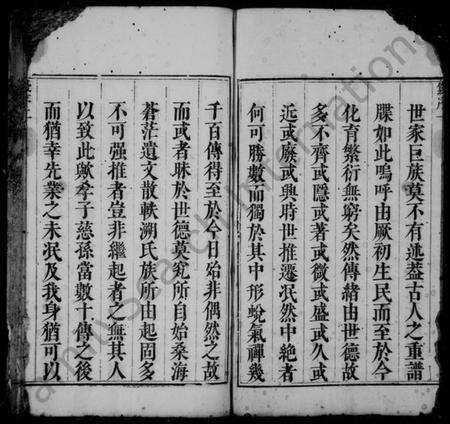 世家巨族莫不有述蓋古人之重譜
牒如此嗚呼由厥初生民而至於今
化育繁衍無窮矣然傳緒由世德故
多不齊或隱或著或微或盛或久或
近或廢或興時世推遷泯然中絶者
何可勝數而獨於其中形蛻氣禪幾
千百傳得至於今日殆非偶然之故
而或者昧於世德莫究所自始桑海
蒼茫遺文散軼溯氏族所由起固多
不可强推者豈非繼起者之無其人
以致此歟孝子慈孫當數十傳之後
而猶幸先業之未泯及我身猶可以
FamilySearch International